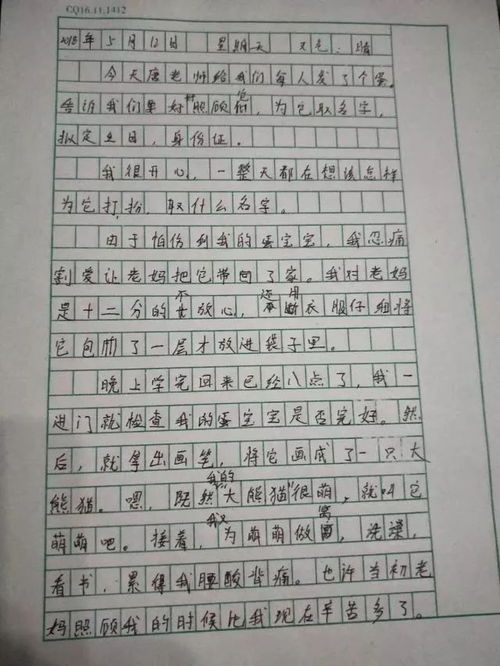 CQ16.11.1412
2018年5月12日 星期天 天气：晴
今天唐老师给我们每人发了个蛋。
告诉我们要好好照顾它们，为它取名字，
拟定生日，身份证。
我很开心，一整天都在想该怎样
为它打扮，取什么名字。
由于怕伤到我的蛋宝宝，我忍痛
割爱让老妈把它带回了家。我对老妈
是十二分的不放心，还用衣服仔细将
它包了一层才放进袋子里。
晚上学完回来已经八点了，我一
进门就检查我的蛋宝宝是否完好。然
后，就拿出画笔，将它画成了一只大
熊猫。嗯，既然我的大熊猫很萌，就叫它
萌萌吧。接着，我又为萌萌做窝，洗澡，
看书，累得我腰酸背痛。也许当初老
妈照顾我的时候比我现在辛苦多了。